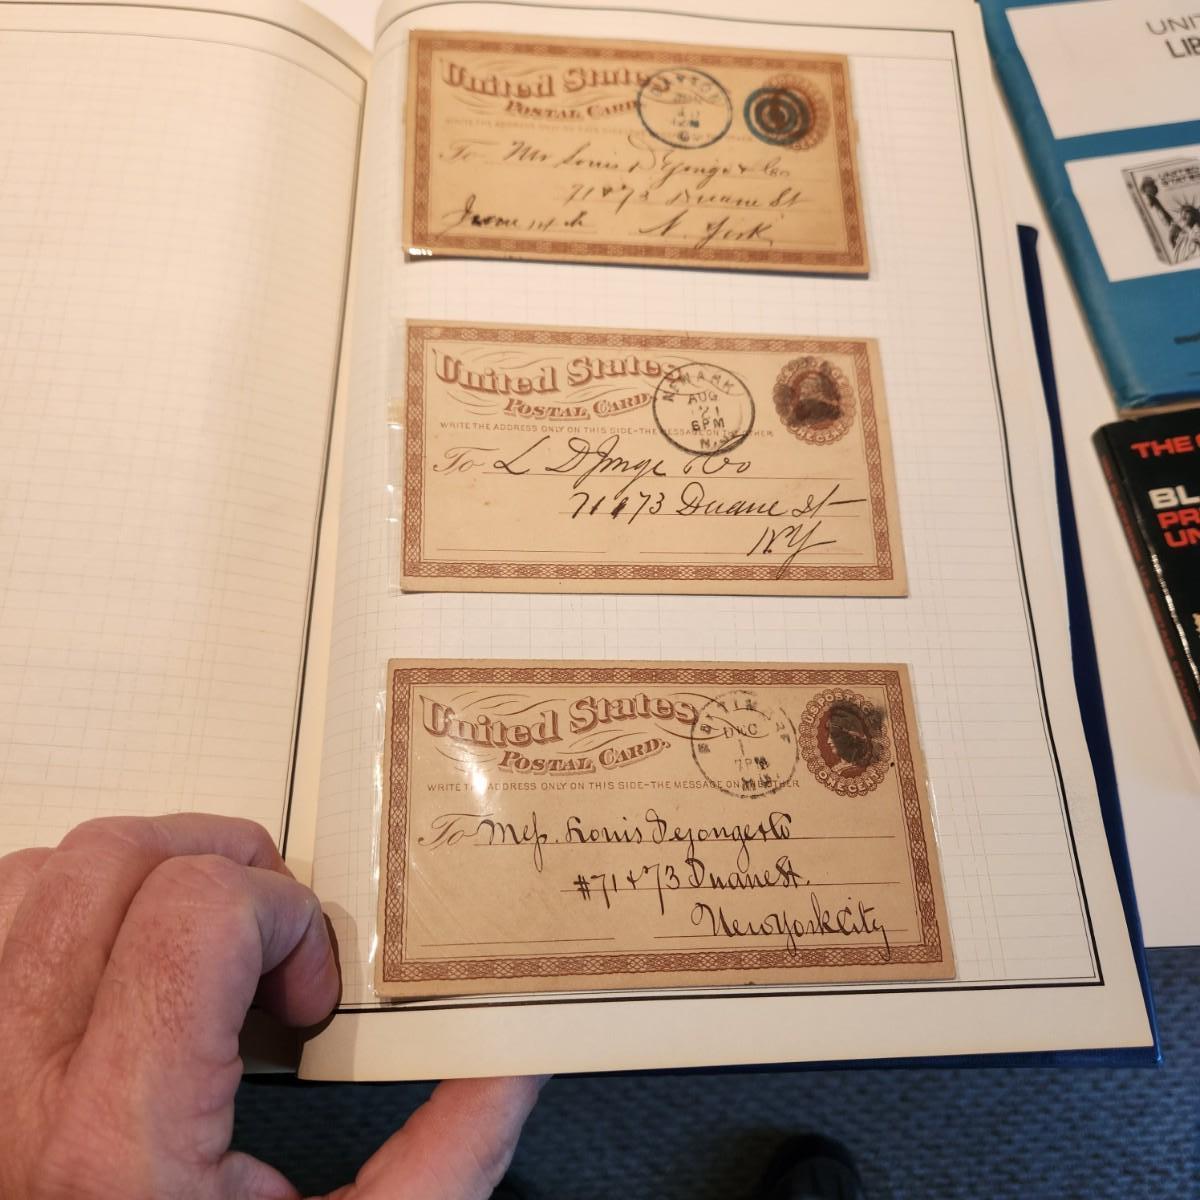 United States
POSTAL CARD
WRITE THE ADDRESS ONLY ON THIS SIDE-THE
DAYTON
12M
O
ONE CENT
To Mr Louis DeJonge & Co
71 & 73 Duane St
June 14th N. York
United States
POSTAL CARD.
WRITE THE ADDRESS ONLY ON THIS SIDE-THE MESSAGE ON THE OTHER
NEWARK
AUG
21
6PM
N.J.
ONE CENT
To L DJonge & Co
71 & 73 Duane St
NY
United States
POSTAL CARD.
WRITE THE ADDRESS ONLY ON THIS SIDE-THE MESSAGE ON THE OTHER
BALTIMORE
DEC
1
7PM
MD.
U.S. POSTAGE
ONE CENT
To Mess. Louis Dejonge & Co
#71 & 73 Duane St.
New York City
UNI
LIB
UNITED
STATES
THE
BL
PR
UN